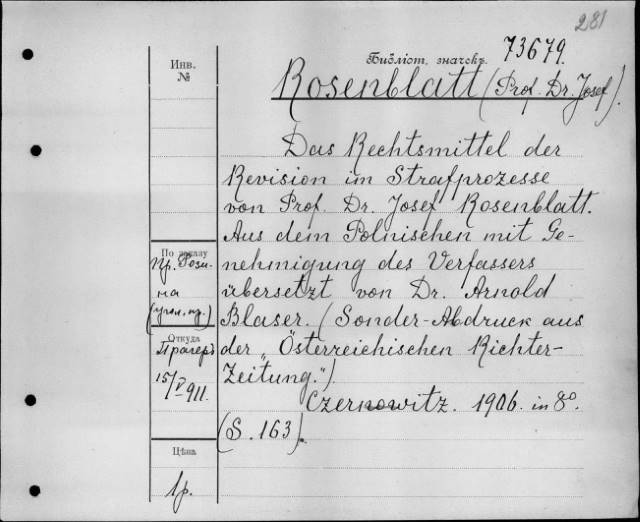 281
Библіот. значекъ. 73679.
Инв.
№
Rosenblatt (Prof. Dr. Josef).
Das Rechtsmittel der
Revision im Strafprozesse
von Prof. Dr. Josef Rosenblatt.
Aus dem Polnischen mit Ge-
nehmigung des Verfassers
übersetzt von Dr. Arnold
Blaser. (Sonder-Abdruck aus
der „Österreichischen Richter-
Zeitung.“)
Czernowitz. 1906. in 8º.
(S. 163).
По заказу
пр. Рози-
на
Откуда
Прагеръ
15/V 911.
Цѣна
1р.